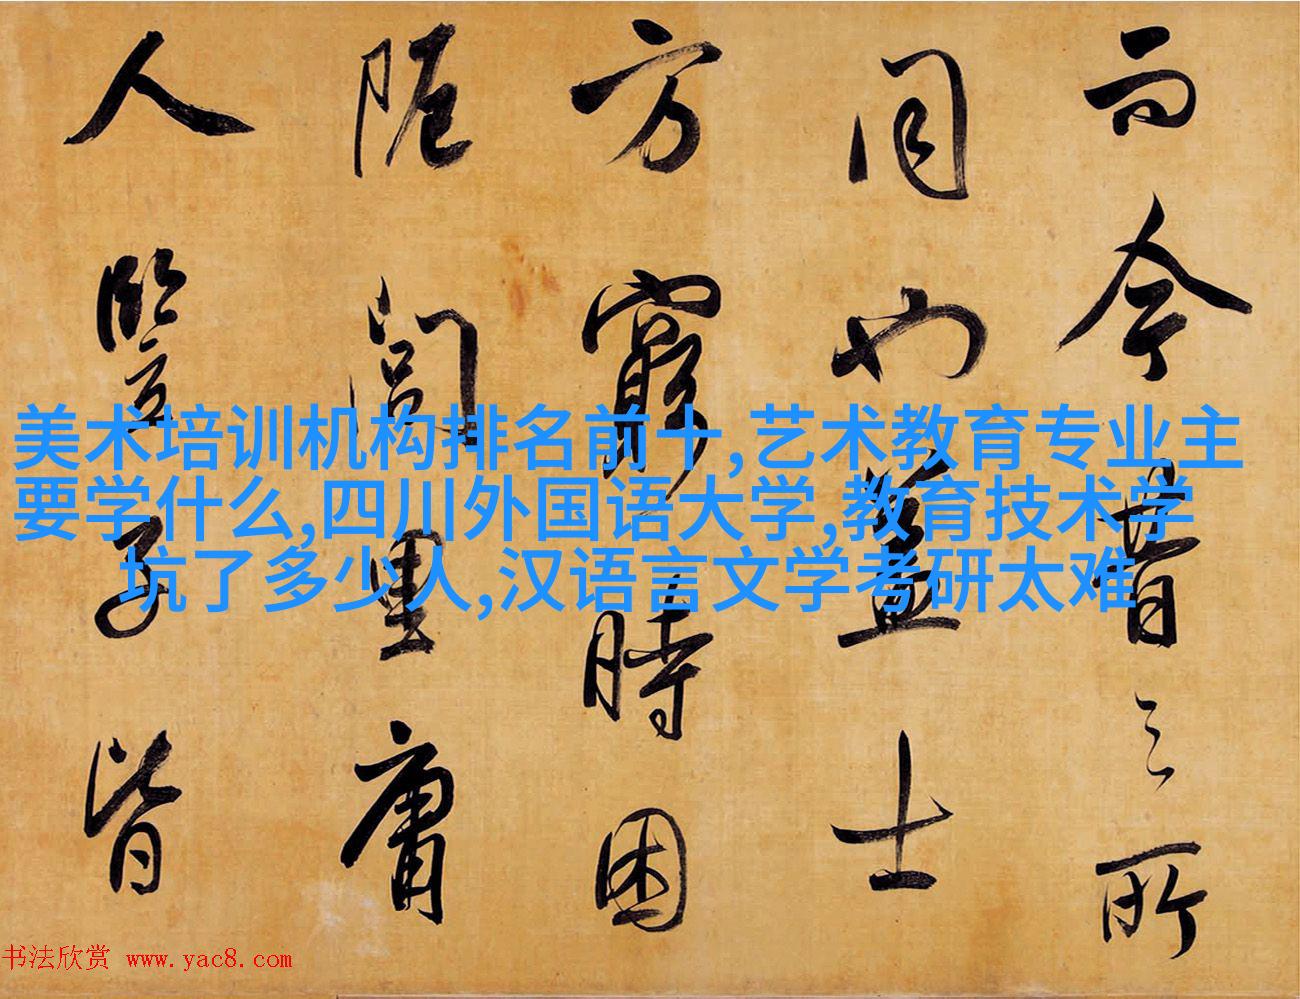 而今昔之所
同也盖士
方窮時困
阨閭里庸
人竪子皆
美术培训机构排名前十,艺术教育专业主
要学什么,四川外国语大学,教育技术学
坑了多少人,汉语言文学考研太难
书法欣赏 www.yac8.com